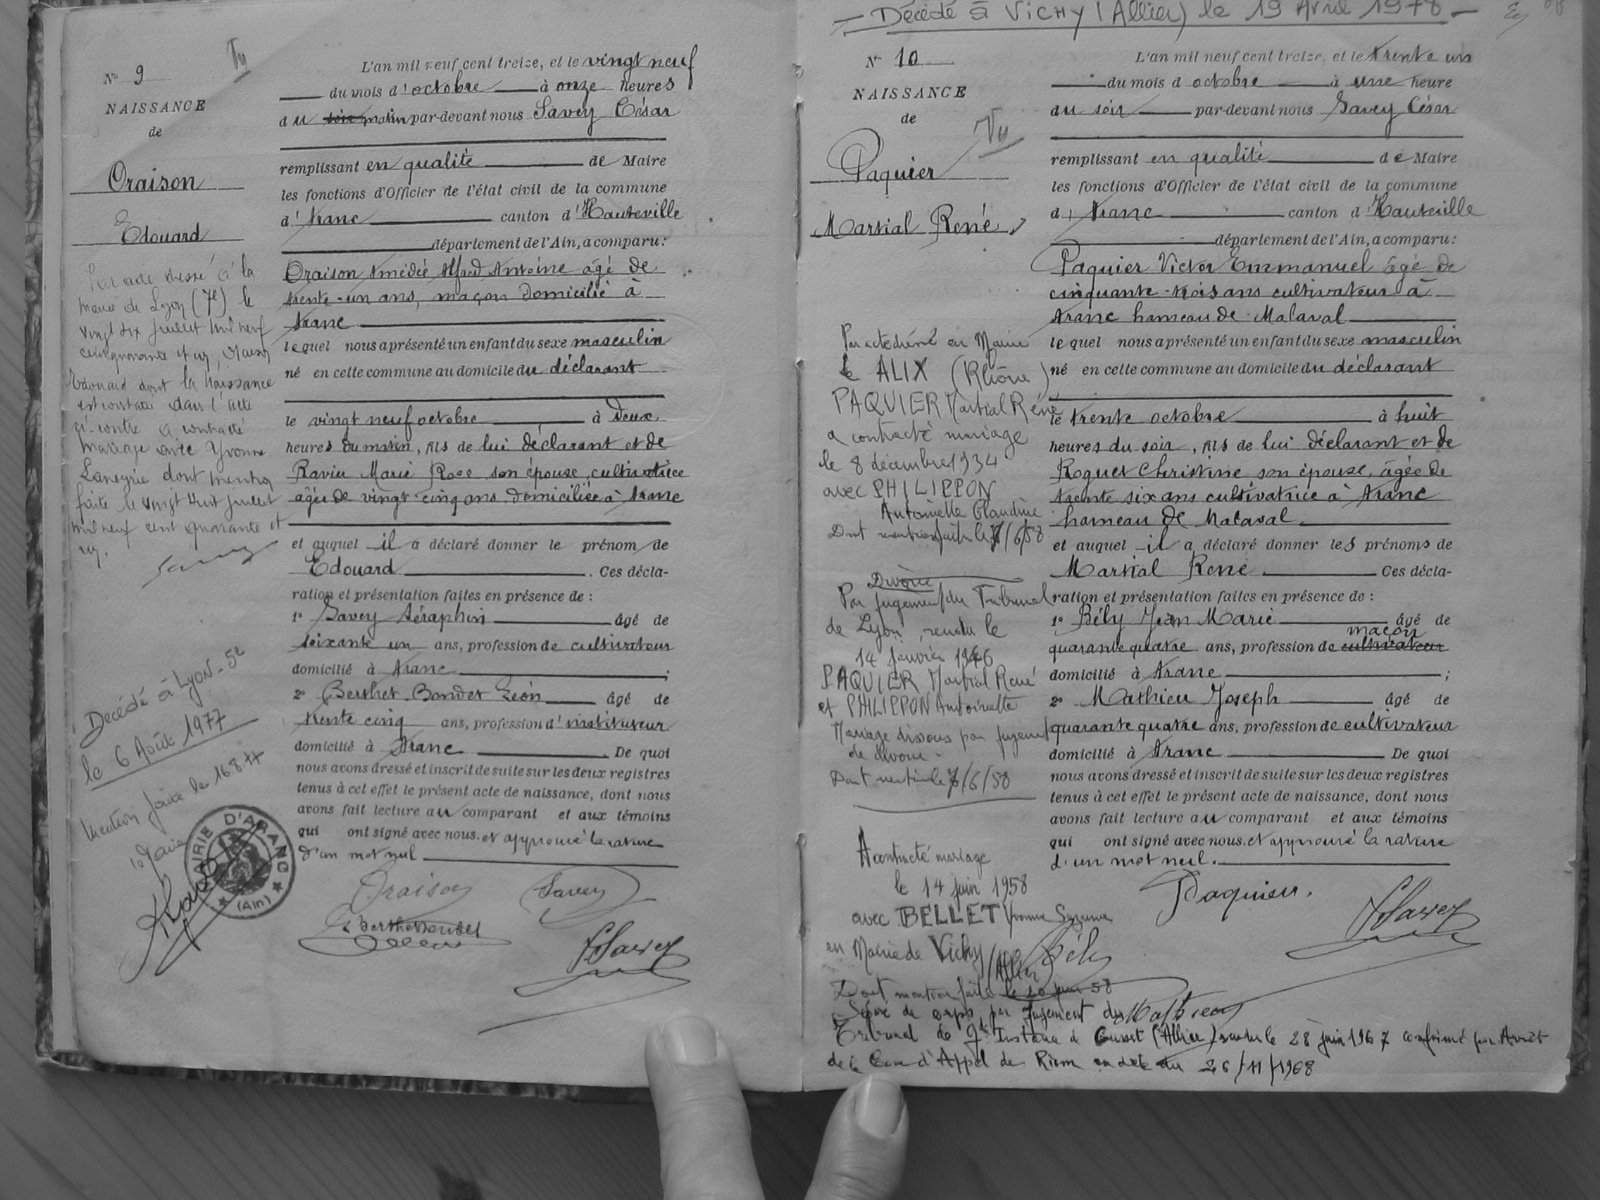 N° 9
NAISSANCE
de
Oraison
Edouard
Par acte dressé à la
mairie de Lyon (7e) le
vingt six juillet mil neuf
cent quarante et un, Oraison
Edouard dont la naissance
est constatée dans l'acte
ci-contre a contracté
mariage avec Yvonne
dont mention
faite le vingt huit juillet
mil neuf cent quarante et
un.
Décédé à Lyon - 5e
le 6 Août 1977
Mention faite le 16 8 77
le Maire
MAIRIE D'ARANC
(Ain)
Vu
L'an mil neuf cent treize, et le vingt neuf
du mois d'octobre à onze heures
du soir matin par-devant nous Savey César
remplissant en qualité de Maire
les fonctions d'Officier de l'état civil de la commune
d'Aranc canton d'Hauteville
département de l'Ain, a comparu :
Oraison Amédée Alfred Antoine âgé de
trente-un ans, maçon domicilié à
Aranc
lequel nous a présenté un enfant du sexe masculin
né en cette commune au domicile du déclarant
le vingt neuf octobre à deux
heures du matin, fils de lui déclarant et de
Ravier Marie Rose son épouse, cultivatrice
âgée de vingt-cinq ans domiciliée à Aranc
et auquel il a déclaré donner le prénom de
Edouard. Ces décla-
ration et présentation faites en présence de :
1° Savey Séraphin âgé de
soixante un ans, profession de cultivateur
domicilié à Aranc ;
2° Berthet-Bondet Léon âgé de
trente cinq ans, profession d'instituteur
domicilié à Aranc. De quoi
nous avons dressé et inscrit de suite sur les deux registres
tenus à cet effet le présent acte de naissance, dont nous
avons fait lecture au comparant et aux témoins
qui ont signé avec nous. et approuvé la rature
d'un mot nul
Oraison Savey
Berthet Bondet
Savey
Décédé à VICHY (Allier) le 19 Avril 1978
N° 10
NAISSANCE
de
Paquier
Martial René
Vu
Par acte dressé en Mairie
de ALIX (Rhône)
PAQUIER Martial René
a contracté mariage
le 8 décembre 1934
avec PHILIPPON
Antoinette Claudine
Dont mention faite le 7/6/58
Divorce
Par jugement du Tribunal
de Lyon, rendu le
14 janvier 1946
PAQUIER Martial René
et PHILIPPON Antoinette
Mariage dissous par jugement
de divorce.
Dont mention le 7/6/58
A contracté mariage
le 14 juin 1958
avec BELLET Yvonne Suzanne
en Mairie de Vichy (Allier)
Dont mention faite le 20 juin 58
Séparé de corps par jugement du
Tribunal de Gde Instance de Cusset (Allier) rendu le 28 juin 1967 confirmé par Arrêt
de la Cour d'Appel de Riom en date du 26/11/1968
L'an mil neuf cent treize, et le trente un
du mois d octobre à une heure
du soir par-devant nous Savey César
remplissant en qualité de Maire
les fonctions d'Officier de l'état civil de la commune
d'Aranc canton d'Hauteville
département de l'Ain, a comparu :
Paquier Victor Emmanuel âgé de
cinquante-trois ans cultivateur à
Aranc hameau de Malaval
lequel nous a présenté un enfant du sexe masculin
né en cette commune au domicile du déclarant
le trente octobre à huit
heures du soir, fils de lui déclarant et de
Roguet Christine son épouse, âgée de
trente six ans cultivatrice à Aranc
hameau de Malaval
et auquel il a déclaré donner les prénoms de
Martial René Ces décla-
ration et présentation faites en présence de :
1° Bély Jean Marie âgé de
maçon
quarante quatre ans, profession de cultivateur
domicilié à Aranc ;
2° Mathieu Joseph âgé de
quarante quatre ans, profession de cultivateur
domicilié à Aranc De quoi
nous avons dressé et inscrit de suite sur les deux registres
tenus à cet effet le présent acte de naissance, dont nous
avons fait lecture au comparant et aux témoins
qui ont signé avec nous. et approuvé la rature
d'un mot nul.
Paquier.
Savey
Bély
Mathieu